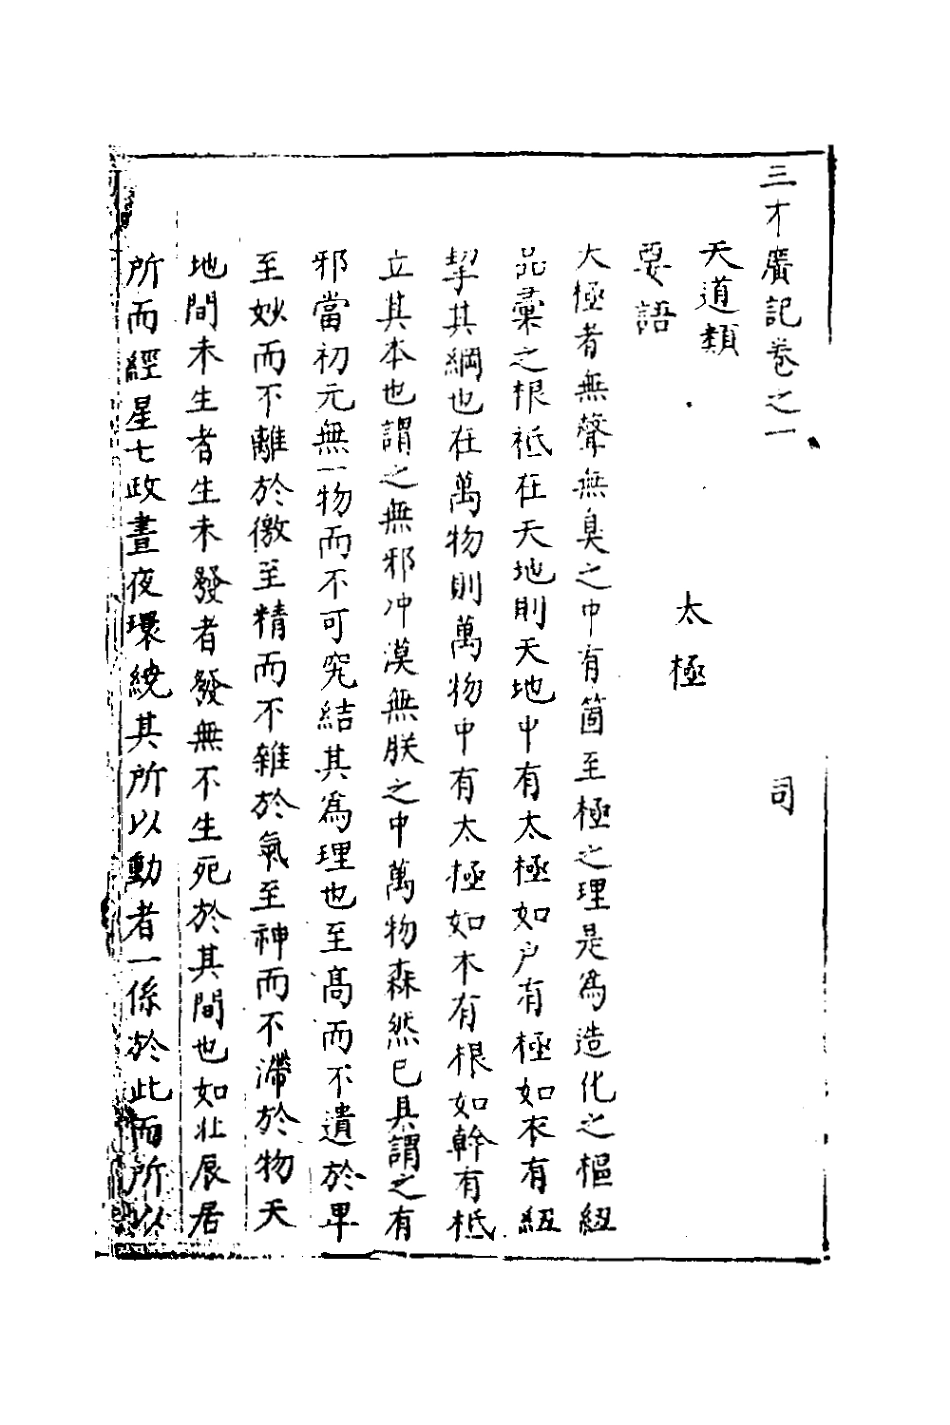 三才廣記卷之一
司
天道類
太極
要語
大極者無聲無臭之中有箇至極之理是為造化之樞紐
品彙之根柢在天地則天地中有太極如户有極如衣有紐
挈其綱也在萬物則萬物中有太極如木有根如幹有柢
立其本也謂之無邪冲漠無朕之中萬物森然已具謂之有
邪當初元無一物而不可究結其為理也至高而不遺於卑
至妙而不離於徼至精而不雜於氣至神而不滯於物天
地間未生者生未發者發無不生死於其間也如北辰居
所而經星七政晝夜環繞其所以動者一係於此而所以